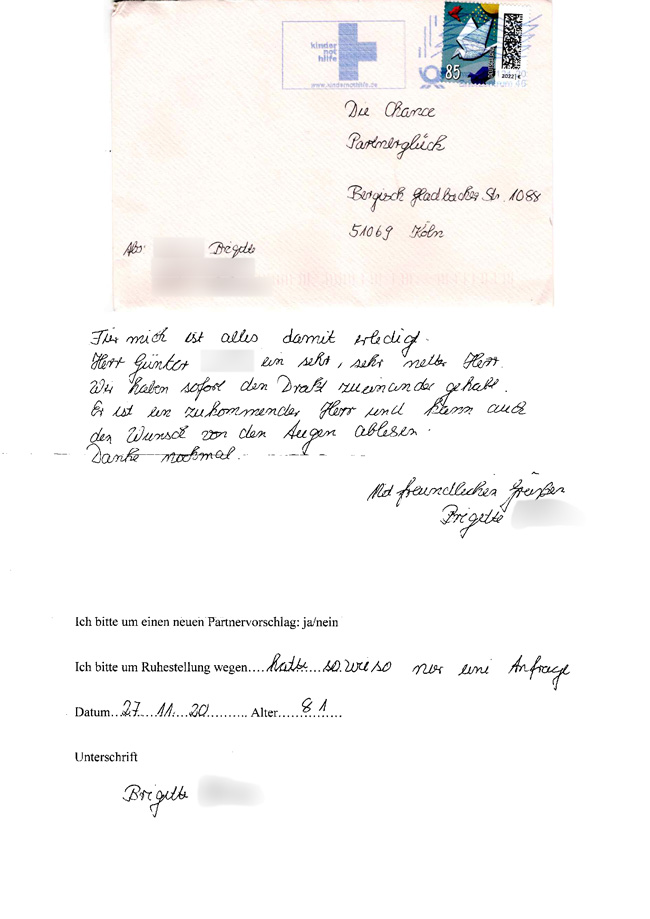 kinder
not
hilfe
www.kindernothilfe.de
85
2022 €
Die Chance
Partnerglück
Bergisch Gladbacher Str. 1088
51069 Köln
Abs: Brigitte
Für mich ist alles damit erledigt.
Herr Günter ein sehr, sehr netter Herr.
Wir haben sofort den Draht zueinander gehabt.
Er ist ein zukommender Herr und kann auch
den Wunsch von den Augen ablesen.
Danke nochmal.
Mit freundlichen Grüßen
Brigitte
Ich bitte um einen neuen Partnervorschlag: ja/nein
Ich bitte um Ruhestellung wegen....hatte...sowieso nur eine Anfrage
Datum...27...11...20........... Alter...81...
Unterschrift
Brigitte